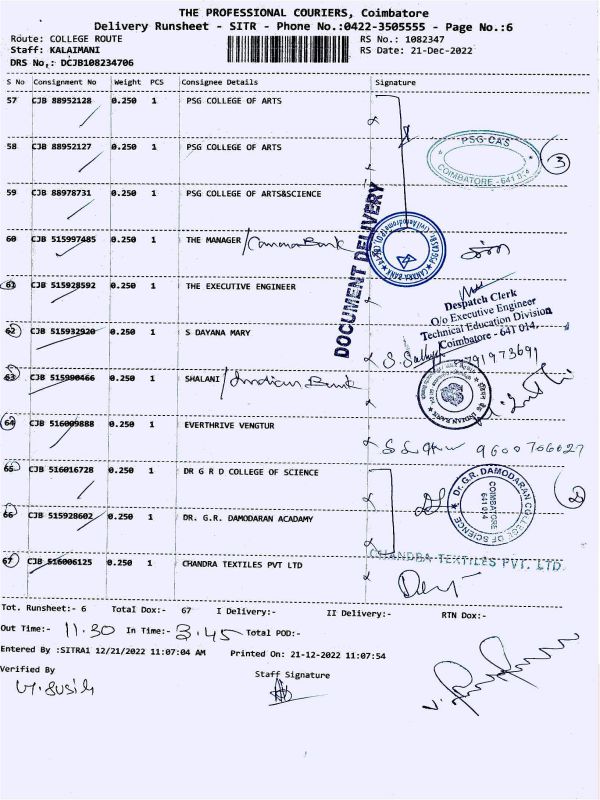 THE PROFESSIONAL COURIERS, Coimbatore
Delivery Runsheet - SITR - Phone No.:0422-3505555 - Page No.:6
Route: COLLEGE ROUTE RS No.: 1082347
Staff: KALAIMANI RS Date: 21-Dec-2022
DRS No,: DCJB108234706
S No Consignment No Weight PCS Consignee Details Signature
57 CJB 88952128 0.250 1 PSG COLLEGE OF ARTS
58 CJB 88952127 0.250 1 PSG COLLEGE OF ARTS
PSG CAS
COIMBATORE - 641 014
3
59 CJB 88978731 0.250 1 PSG COLLEGE OF ARTS&SCIENCE
DOCUMENT DELIVERY
60 CJB 515997485 0.250 1 THE MANAGER / Canara Bank
61 CJB 515928592 0.250 1 THE EXECUTIVE ENGINEER
Despatch Clerk
O/o Executive Engineer
Technical Education Division
Coimbatore - 641 014.
62 CJB 515932920 0.250 1 S DAYANA MARY
63 CJB 515990466 0.250 1 SHALANI / Indian Bank
INDIAN BANK
64 CJB 516009888 0.250 1 EVERTHRIVE VENGTUR
9600706027
65 CJB 516016728 0.250 1 DR G R D COLLEGE OF SCIENCE
Dr. G.R. DAMODARAN COLLEGE OF SCIENCE
COIMBATORE
641 014
2
66 CJB 515928602 0.250 1 DR. G.R. DAMODARAN ACADAMY
67 CJB 516006125 0.250 1 CHANDRA TEXTILES PVT LTD
CHANDRA TEXTILES PVT. LTD.
Tot. Runsheet:- 6 Total Dox:- 67 I Delivery:- II Delivery:- RTN Dox:-
Out Time:- 11.30 In Time:- 3.45 Total POD:-
Entered By :SITRA1 12/21/2022 11:07:04 AM Printed On: 21-12-2022 11:07:54
Verified By Staff Signature